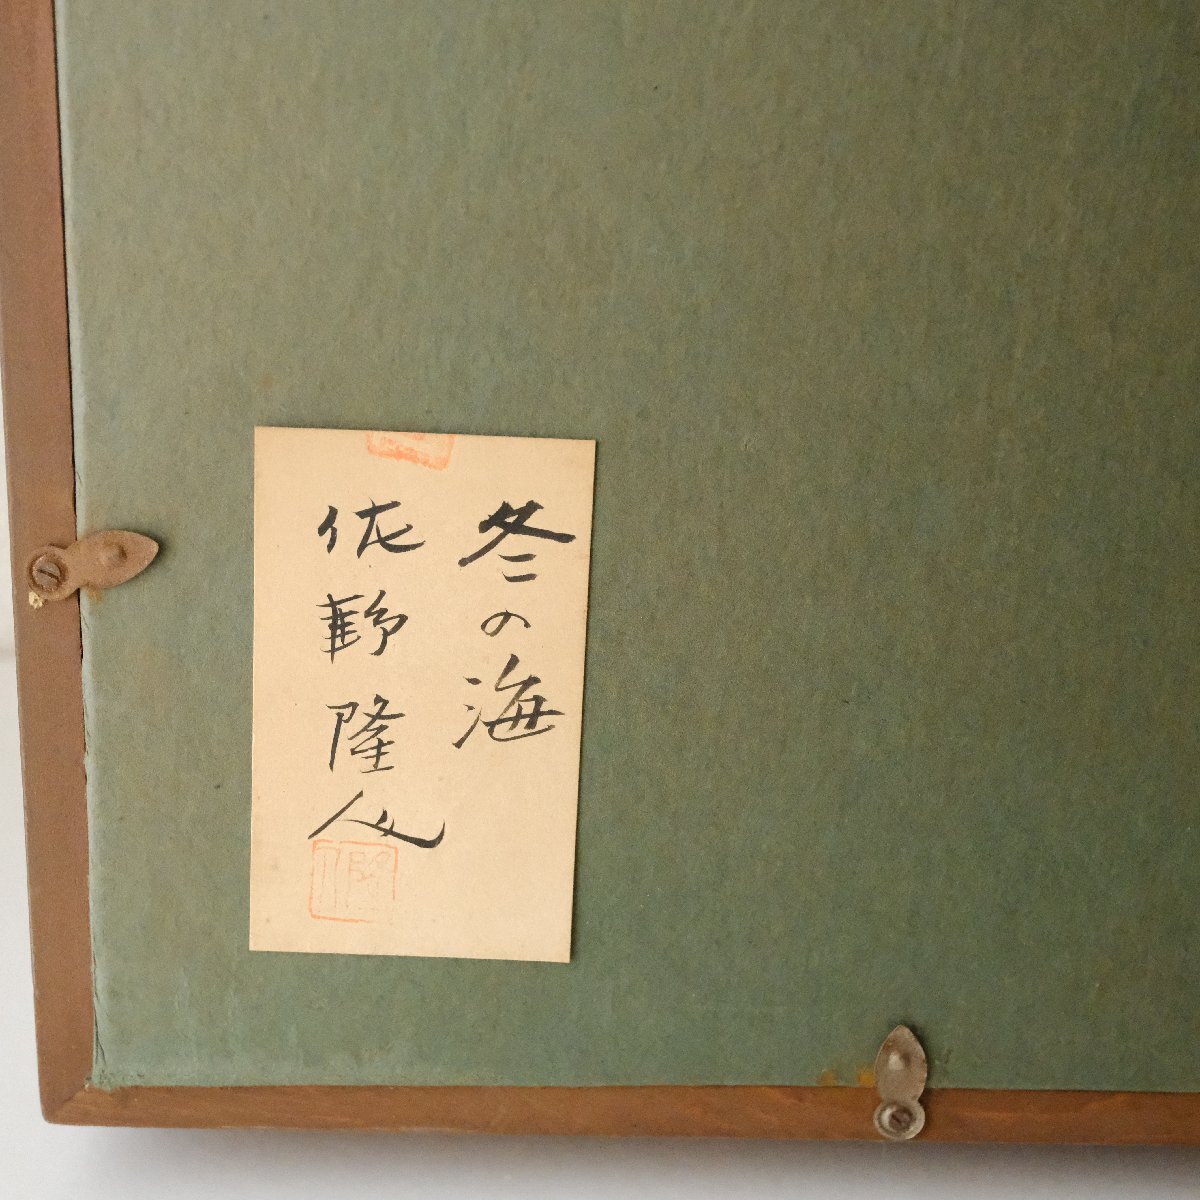 冬の海
佐野隆人